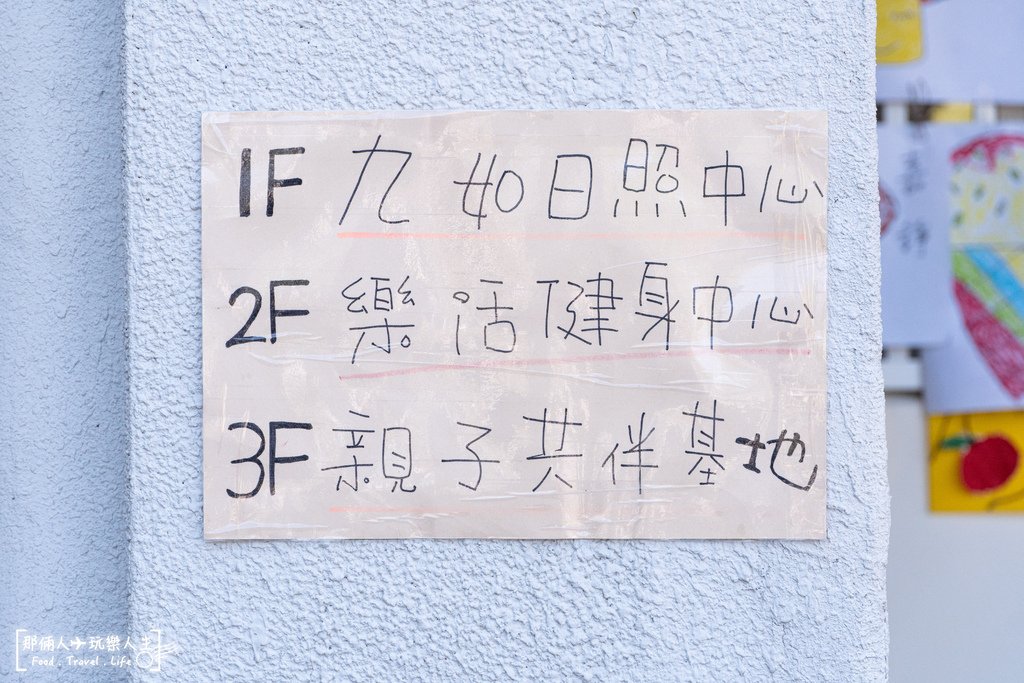 1F 九如日照中心
2F 樂活健身中心
3F 親子共伴基地
那倆人玩樂人生
Food . Travel . Life